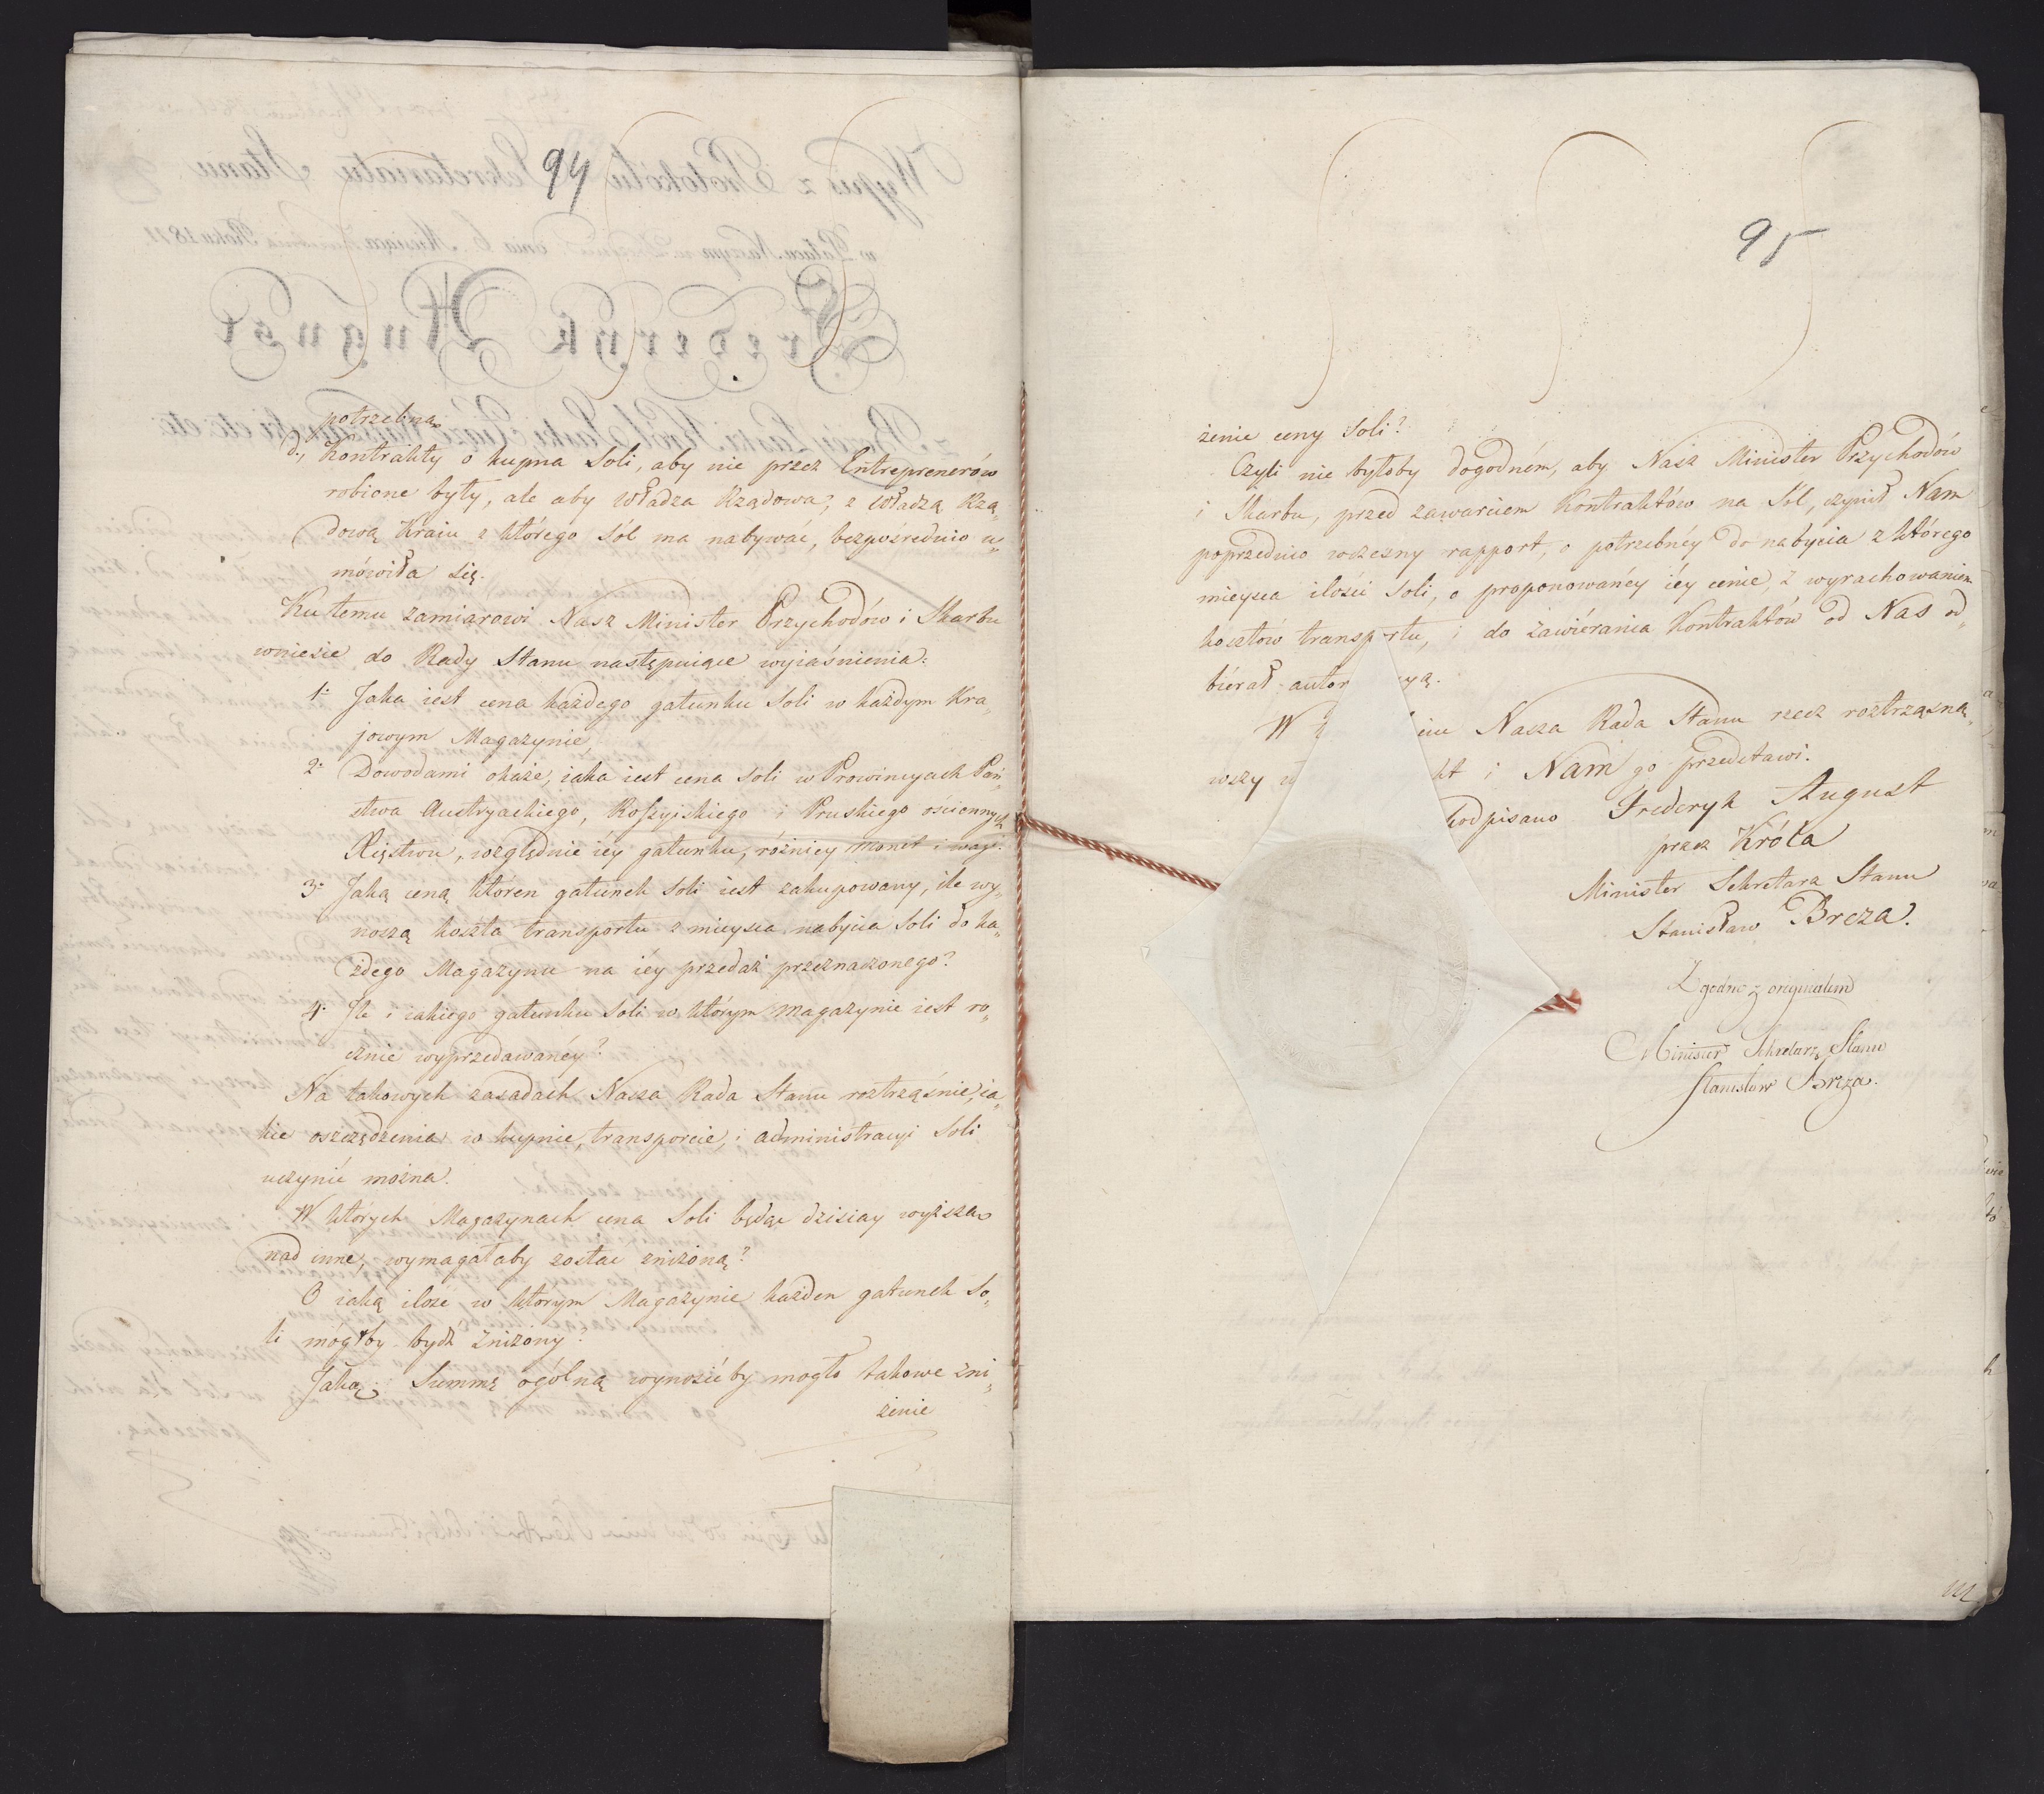 94
potrzebną.
d., Kontrakty o kupna Soli, aby nie przez Entreprenerów
robione były, ale aby Władza Rządowa, z Władzą Rzą„
dową Kraiu z którego Sól ma nabywać, bezpośrednio u„
mówiła się.
Ku temu zamiarowi Nasz Minister Przychodów i Skarbu
wniesie do Rady Stanu następuiące wyiaśnienia:
1º Jaka iest cena każdego gatunku Soli w każdym Kra„
jowym Magazynie,
2º Dowodami okaże, iaka iest cena Soli w Prowincyach Pań„
stwa Austryackiego, Rossyiskiego i Pruskiego ościennych
Xięstwu, względnie iéy gatunku, różnicy monet i wagi.
3º Jaką ceną któren gatunek Soli iest zakupowany, ile wy„
noszą koszta transportu z mieysca nabycia Soli do ka„
żdego Magazynu na iéy przedaż przeznaczonego?
4º Ile i iakiego gatunku Soli w którym magazynie iest ro„
cznie wyprzedawanéy?
Na takowych zasadach Nasza Rada Stanu roztrząśnie, ia„
kie oszczędzenia w kupnie, transporcie, i administracyi Soli
uczynić można.
W których Magazynach cena Soli będąc dzisiay wyższa
nad inne, wymagałaby zostać zniżoną?
O iaką ilość w którym Magazynie każden gatunek So„
li mógłby bydź zniżony?
Jaką Summę ogólną wynosić by mogło takowe zni„
żenie
95
żenie ceny Soli?
Czyli nie byłoby dogodném, aby Nasz Minister Przychodów
i Skarbu, przed zawarciem Kontraktów na Sól, czynił Nam
poprzednio wczesny rapport, o potrzebnéy do nabycia z którego
mieysca ilości Soli, o proponowanéy iéy cenie, z wyrachowaniem
kosztów transportu, i do zawiérania Kontraktów od Nas od„
biérał autor yą.
W iu Nasza Rada Stanu rzecz roztrząsną„
wszy kt i Nam go przedstawi.
podpisano Fryderyk August
przez Króla
Minister Sekretarz Stanu
Stanisław Breza.
Zgodno z originałem
Minister Sekretarz Stanu
Stanisław Breza.